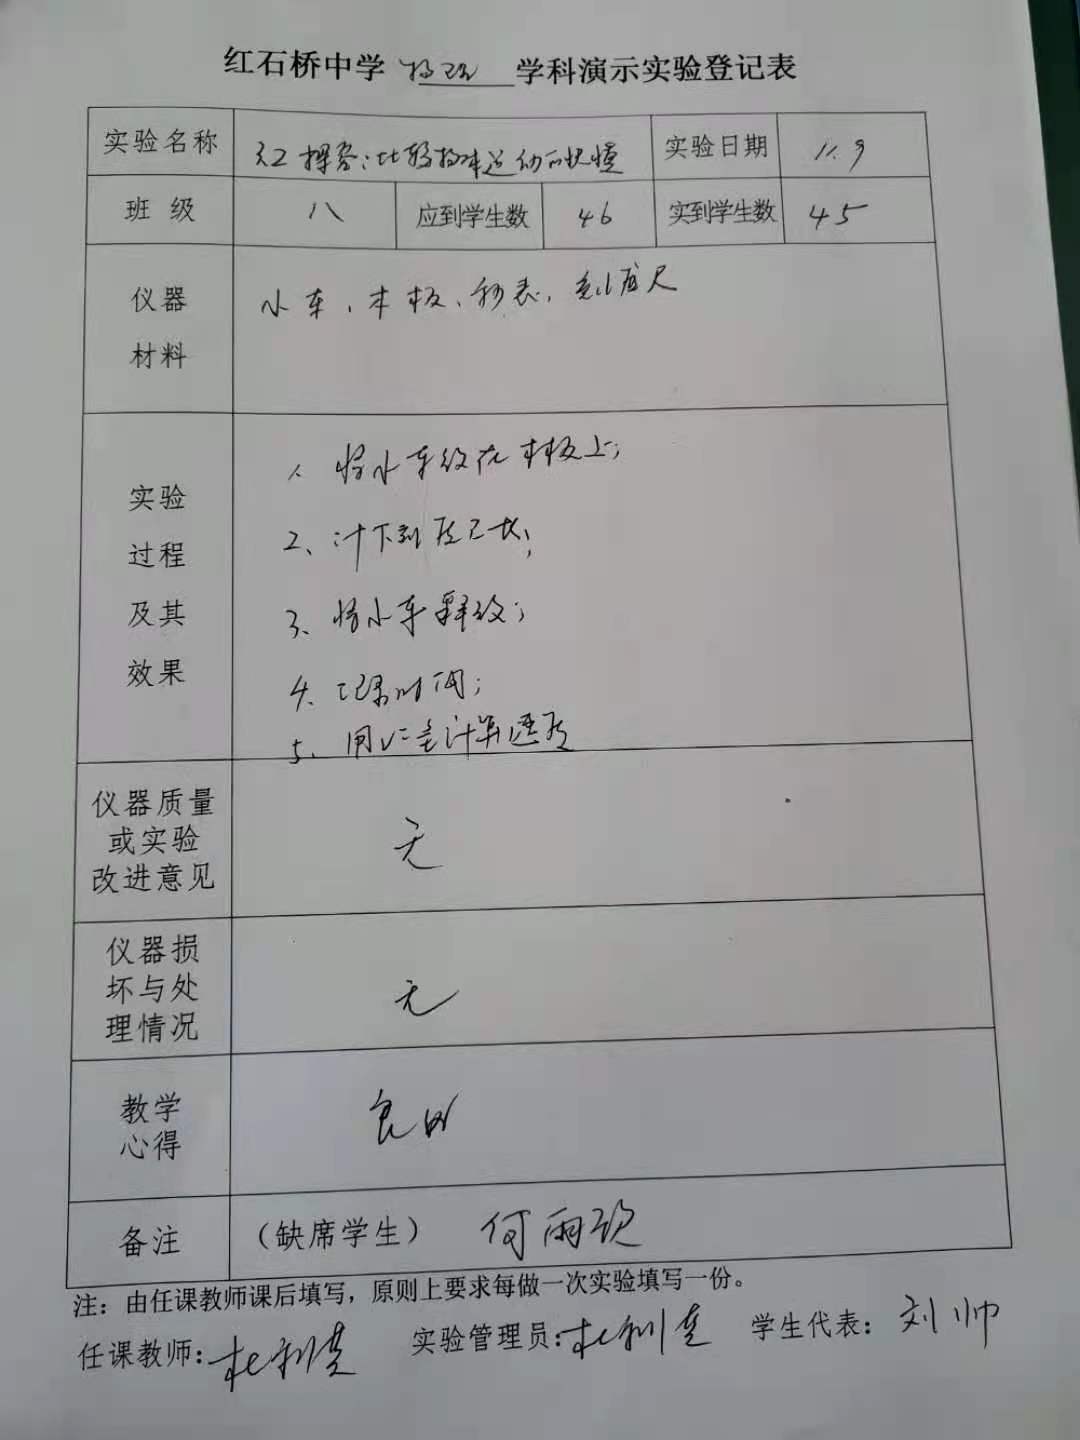 红石桥中学 物理 学科演示实验登记表
实验名称 探究:比较物体运动的快慢 实验日期 11.9
班 级 八 应到学生数 46 实到学生数 45
仪器
材料
小车、木板、秒表、刻度尺
实验
过程
及其
效果
1、将小车放在木板上;
2、计下刻度已长;
3、将小车释放;
4、记录时间;
5、用公式计算速度
仪器质量
或实验
改进意见
无
仪器损
坏与处
理情况
无
教学
心得
良好
备注 (缺席学生) 何雨欣
注:由任课教师课后填写,原则上要求每做一次实验填写一份。
任课教师: 实验管理员: 学生代表:刘帅